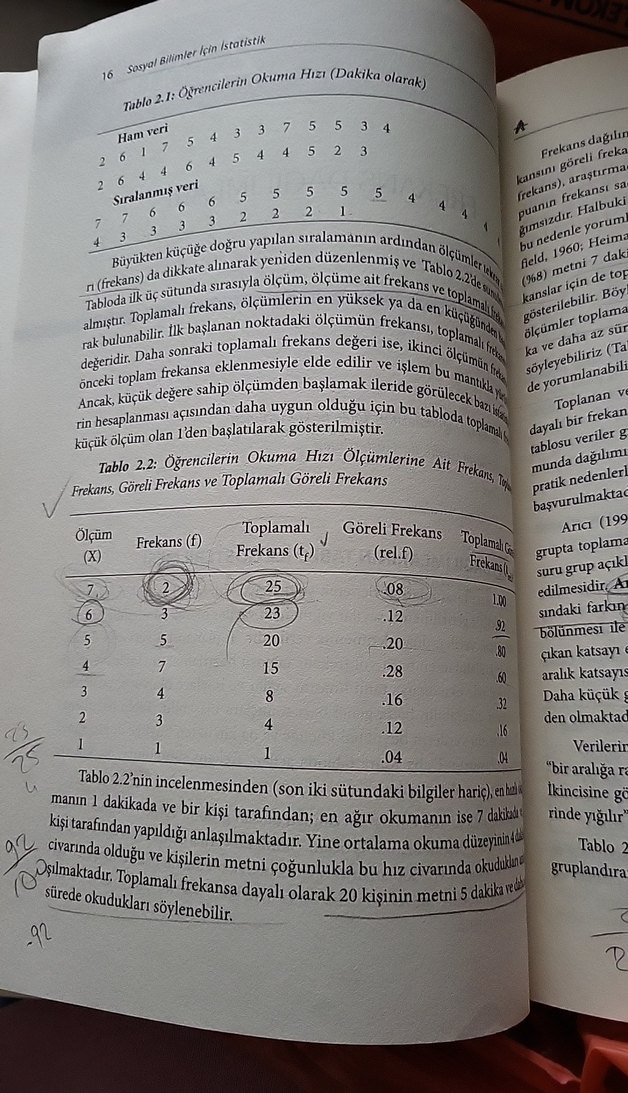 16 Sosyal Bilimler İçin İstatistik
Tablo 2.1: Öğrencilerin Okuma Hızı (Dakika olarak)
Ham veri
2 6 1 7 5 4 3 3 7 5 5 3 4
2 6 4 4 6 4 5 4 4 5 2 3
Sıralanmış veri
7 7 6 6 6 5 5 5 5 5 4 4 4 4
4 3 3 3 3 2 2 2 1
Büyükten küçüğe doğru yapılan sıralamanın ardından ölçümler
rı (frekans) da dikkate alınarak yeniden düzenlenmiş ve Tablo 2.2'de
Tabloda ilk üç sütunda sırasıyla ölçüm, ölçüme ait frekans ve toplamalı
almıştır. Toplamalı frekans, ölçümlerin en yüksek ya da en küçüğünden
rak bulunabilir. İlk başlanan noktadaki ölçümün frekansı, toplamalı
değeridir. Daha sonraki toplamalı frekans değeri ise, ikinci ölçümün
önceki toplam frekansa eklenmesiyle elde edilir ve işlem bu mantıkla
Ancak, küçük değere sahip ölçümden başlamak ileride görülecek bazı
rin hesaplanması açısından daha uygun olduğu için bu tabloda toplamalı
küçük ölçüm olan 1'den başlatılarak gösterilmiştir.
Tablo 2.2: Öğrencilerin Okuma Hızı Ölçümlerine Ait Frekans,
Frekans, Göreli Frekans ve Toplamalı Göreli Frekans
Ölçüm (X) Frekans (f) Toplamalı Frekans (tf) Göreli Frekans (rel.f) Toplamalı Frekans
7 2 25 .08 1.00
6 3 23 .12 .92
5 5 20 .20 .80
4 7 15 .28 .60
3 4 8 .16 .32
2 3 4 .12 .16
1 1 1 .04 .04
23/25
Tablo 2.2'nin incelenmesinden (son iki sütundaki bilgiler hariç), en hızlı
manın 1 dakikada ve bir kişi tarafından; en ağır okumanın ise 7 dakikada
kişi tarafından yapıldığı anlaşılmaktadır. Yine ortalama okuma düzeyinin 4
civarında olduğu ve kişilerin metni çoğunlukla bu hız civarında okudukları
şılmaktadır. Toplamalı frekansa dayalı olarak 20 kişinin metni 5 dakika ve
sürede okudukları söylenebilir.
92/100
.92
Frekans dağılın
kansını göreli freka
frekans), araştırma
puanın frekansı
ğımsızdır. Halbuki
bu nedenle yoruml
field, 1960; Heima
(%8) metni 7 daki
kanslar için de top
gösterilebilir. Böyl
ölçümler toplama
ka ve daha az sür
söyleyebiliriz (Ta
de yorumlanabili
Toplanan ve
dayalı bir frekan
tablosu veriler g
munda dağılımı
pratik nedenlerl
başvurulmaktad
Arıcı (199
grupta toplama
suru grup açıkl
edilmesidir. Ar
sındaki farkın
bölünmesi ile
çıkan katsayı
aralık katsayıs
Daha küçük g
den olmaktad
Verilerin
"bir aralığa ra
İkincisine gö
rinde yığılır"
Tablo 2
gruplandıra